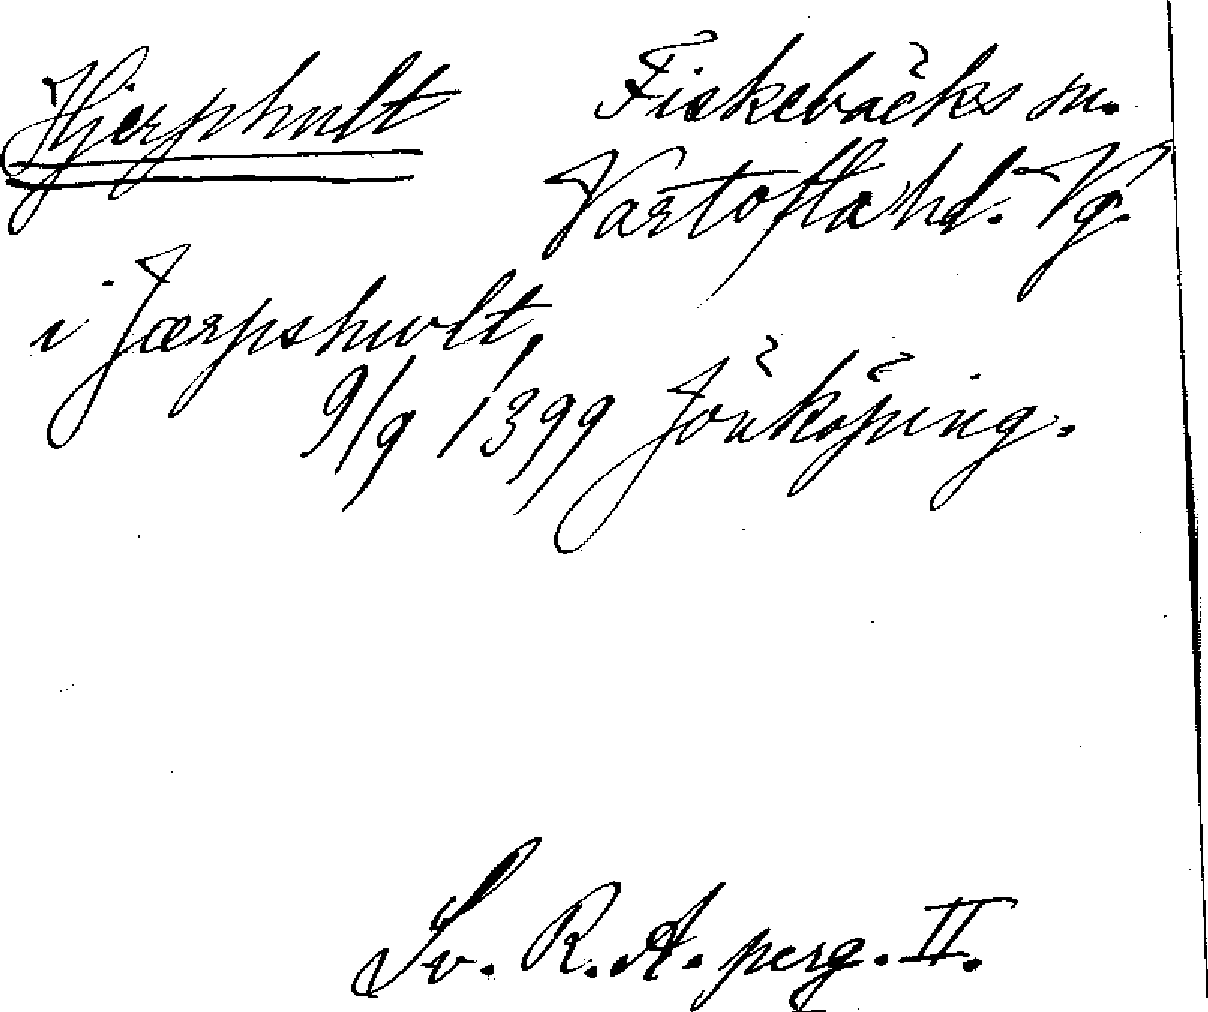 Hjerphult Fiskebäcks sn.
Vartofta hd. Vg.
i Jærpshwlt,
9/9 1399 Jönköping.
Sv. R. A. perg. II.